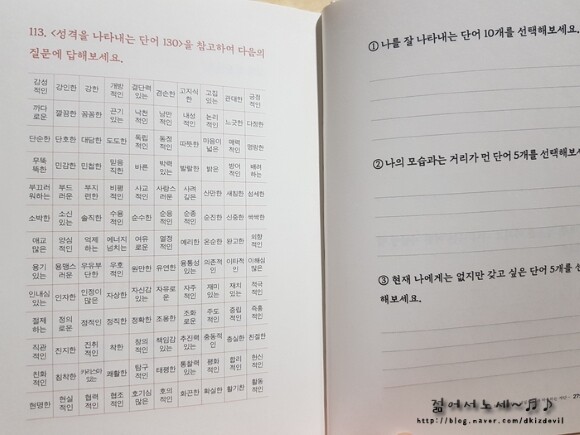 113. <성격을 나타내는 단어 130>을 참고하여 다음의
질문에 답해보세요.
감성적인 강인한 강한 개방적인 결단력 있는 겸손한 고지식한 고집 있는 관대한 긍정적인
까다로운 깔끔한 꼼꼼한 끈기 있는 낙천적인 낭만적인 내성적인 논리적인 느긋한 다정한
단순한 단호한 대담한 도도한 독립적인 동정적인 따뜻한 마음이 넓은 매력적인 명랑한
무뚝뚝한 민감한 민첩한 믿음직한 바른 박력 있는 발랄한 밝은 방어적인 배려하는
부끄러워하는 부드러운 부지런한 비평적인 사교적인 사랑스러운 사려 깊은 산만한 새침한 섬세한
소박한 소신 있는 솔직한 수용적인 순수한 순응적인 순종적인 순진한 신중한 싹싹한
애교 많은 양심적인 억제하는 에너지 넘치는 여유로운 열정적인 예리한 온순한 완고한 외향적인
용기 있는 용맹스러운 우유부단한 우호적인 원만한 유연한 융통성 있는 의존적인 이타적인 이해심 많은
인내심 있는 인자한 인정이 많은 자상한 자신감 있는 자유로운 자주적인 재미 있는 재치 있는 적극적인
절제하는 정의로운 정적인 정직한 정확한 조용한 조화로운 주도적인 중립적인 즉흥적인
직관적인 진지한 진취적인 착한 창의적인 책임감 있는 추진력 있는 충동적인 충실한 친절한
친화적인 침착한 카리스마 있는 쾌활한 탐구적인 태평한 통찰력 있는 평화적인 합리적인 헌신적인
현명한 현실적인 협력적인 협조적인 호기심 많은 호의적인 화끈한 확실한 활기찬 활동적인
① 나를 잘 나타내는 단어 10개를 선택해보세요.
② 나의 모습과는 거리가 먼 단어 5개를 선택해보
③ 현재 나에게는 없지만 갖고 싶은 단어 5개를 선
해보세요.
젊어서노세~♬♪
http://blog.naver.com/dkizdevil